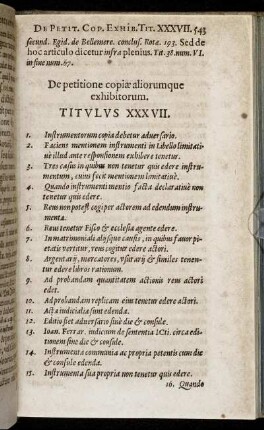 DE PETIT. COP. EXHIB. TIT. XXXVII. 543
secund. Egid. de Bellemere. conclus. Rota. 193. Sed de
hoc articulo dicetur infra plenius. Tit. 38. num. VI.
in fine num. 87.
De petitione copiæ aliorumque
exhibitorum.
TITVLVS XXXVII.
1. Instrumentorum copia debetur adversario.
2. Faciens mentionem instrumenti in libello limitati-
uè illud ante responsionem exhibere tenetur.
3. Tres casus in quibus non tenetur quis edere instru-
mentum, cuius fecit mentionem limitatiuè.
4. Quando instrumenti mentio facta declaratiuè non
tenetur quis edere.
5. Reus non potest cogi per actorem ad edendum instru-
menta.
6. Reus tenetur Fisco & ecclesia agente edere.
7. In matrimoniali alijsque causis, in quibus favor pi-
etatis vertitur, reus cogitur edere actori.
8. Argentarij, mercatores, vsurarij & similes tenen-
tur edere libros rationum.
9. Ad probandam quantitatem actionis reus actori
edet.
10. Ad probandam replicam eius tenetur edere actori.
11. Acta iudicialia sunt edenda.
12. Editio fiet adversario sine die & consule.
13. Ioan. Ferrar. indicum de sententia ICti. circa edi-
tionem sine die & consule.
14. Instrumenta communia ac propria petentis cum die
& consule edenda.
15. Instrumenta sua propria non tenetur quis edere.
16. Quando